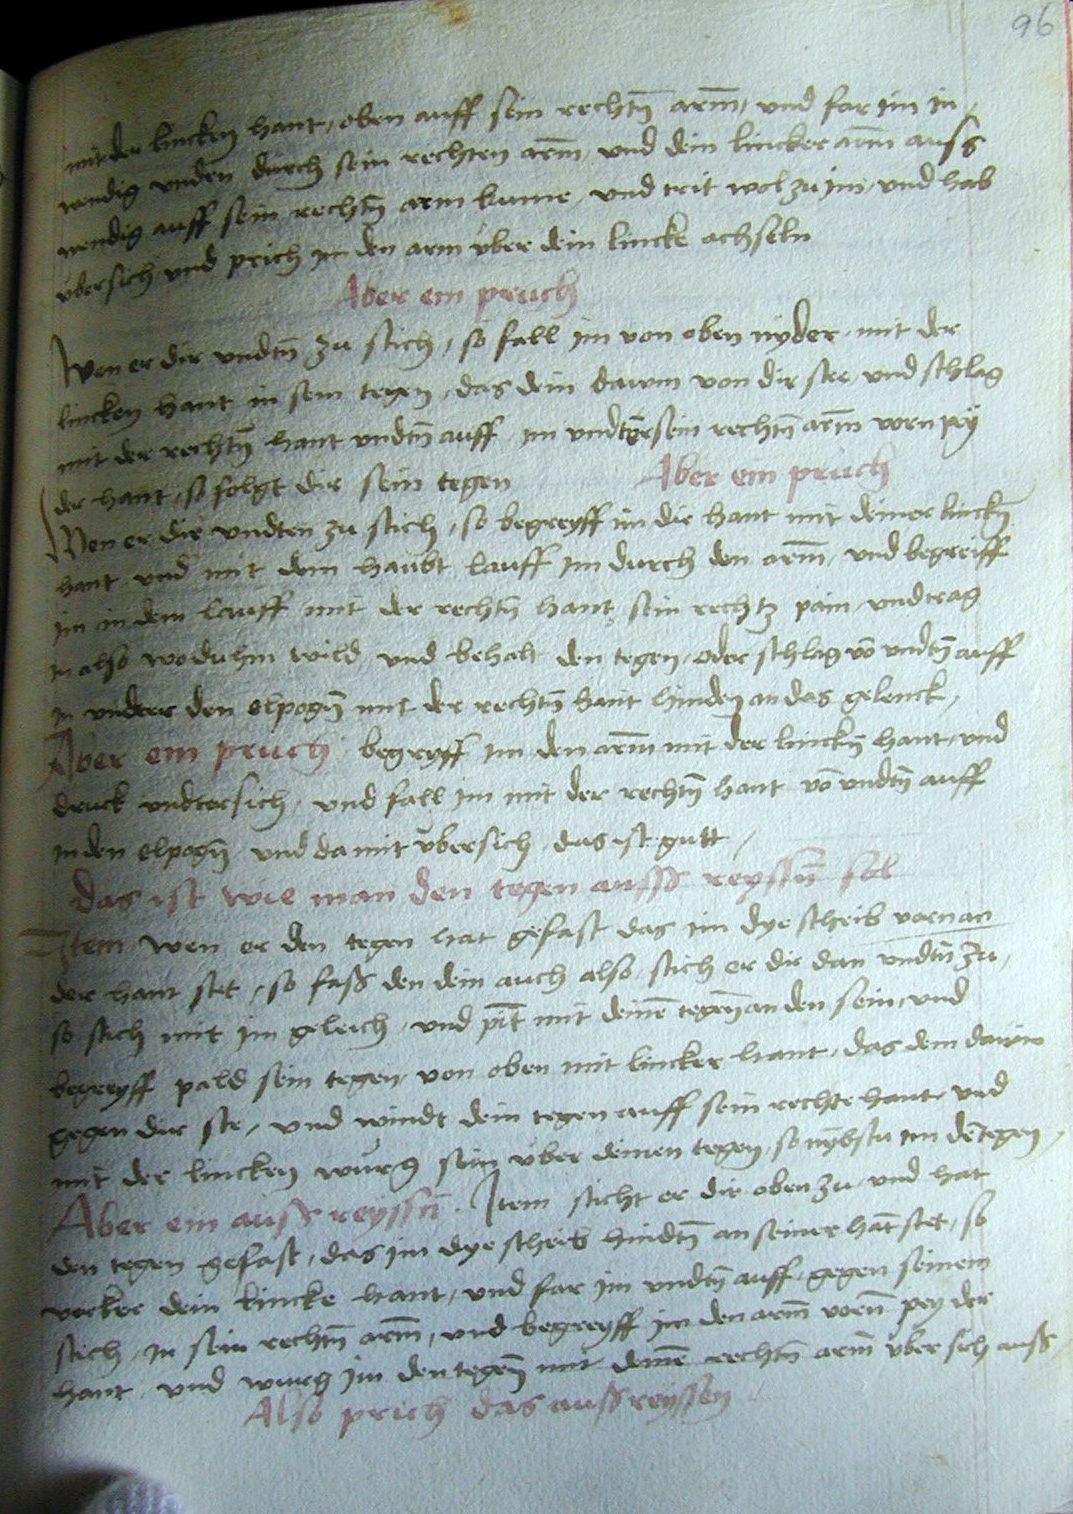 96
mit der lincken hant, oben auff sein rechtn̄ arm̄, und far im in
wendig unden durch sein rechten arm̄, und dein lincker arm̄ auss
wendig auff sein rechtn̄ arm kume, und trit wol zu im, und hab
übersich und prich im den arm über dein lincke achseln
Aber ein pruch
Wen er dir undtn̄ zu stich, so fall im von oben nyder, mit der
lincken hant in sein tegen, das dein dawm von dir ste, und schlag
mit der rechtn̄ hant undtn̄ auff im undter sein rechtn̄ arm̄ vorn pey
der hant, so folgt dir sein tegen Aber ein pruch
Wen er dir undten zu stich, so begreyff im die hant mit deiner linckn̄
hant und mit dem haubt lauff im durch den arm̄, und begreiff
im in dem lauff mit der rechtn̄ hant sein rechtz pain, und trag
in also wo du hin wild, und behalt den tegen, oder schlag vō undtn̄ auff
in undter den elpogn̄ mit der rechtn̄ hant hinden an das gelenck,
Aber ein pruch begreyff im den arm̄ mit der linckn̄ hant, und
druck undtersich, und fall im mit der rechtn̄ hant vō undtn̄ auff
in den elpogn̄ und da mit übersich, das ist gutt,
Das ist wie man den tegen auss reyssn̄ sol
Item wen er den tegen hat gefast das im dye scheib vorn an
der hant stet, so fass den dein auch also, stich er dir dan undtn̄ zu,
so stich mit im geleich, und pit̄ mit deinē tegen̄ an den sein, und
begreyff pald sein tegen, von oben mit lincker hant, das dein dawm
gegen dir ste, und windt dein tegen auff sein rechte hant, und
mit der lincken würg sein über deinen tegen, so nÿbstu im dē tegen,
Aber ein auss reyssn̄. Item sticht er dir oben zu, und hat
den tegen gefast, das im dye scheib hindtn̄ an seiner hāt stet, so
verker dein lincke hant, und far im undtn̄ auff, gegen seinem
stich, in sein rechtn̄ arm̄, und begreyff im den arm̄ vorn̄ pey der
hant, und wurg im den tegen̄ mit deinē rechtn̄ arm̄ über sich auss
Also prich das auss reyssen